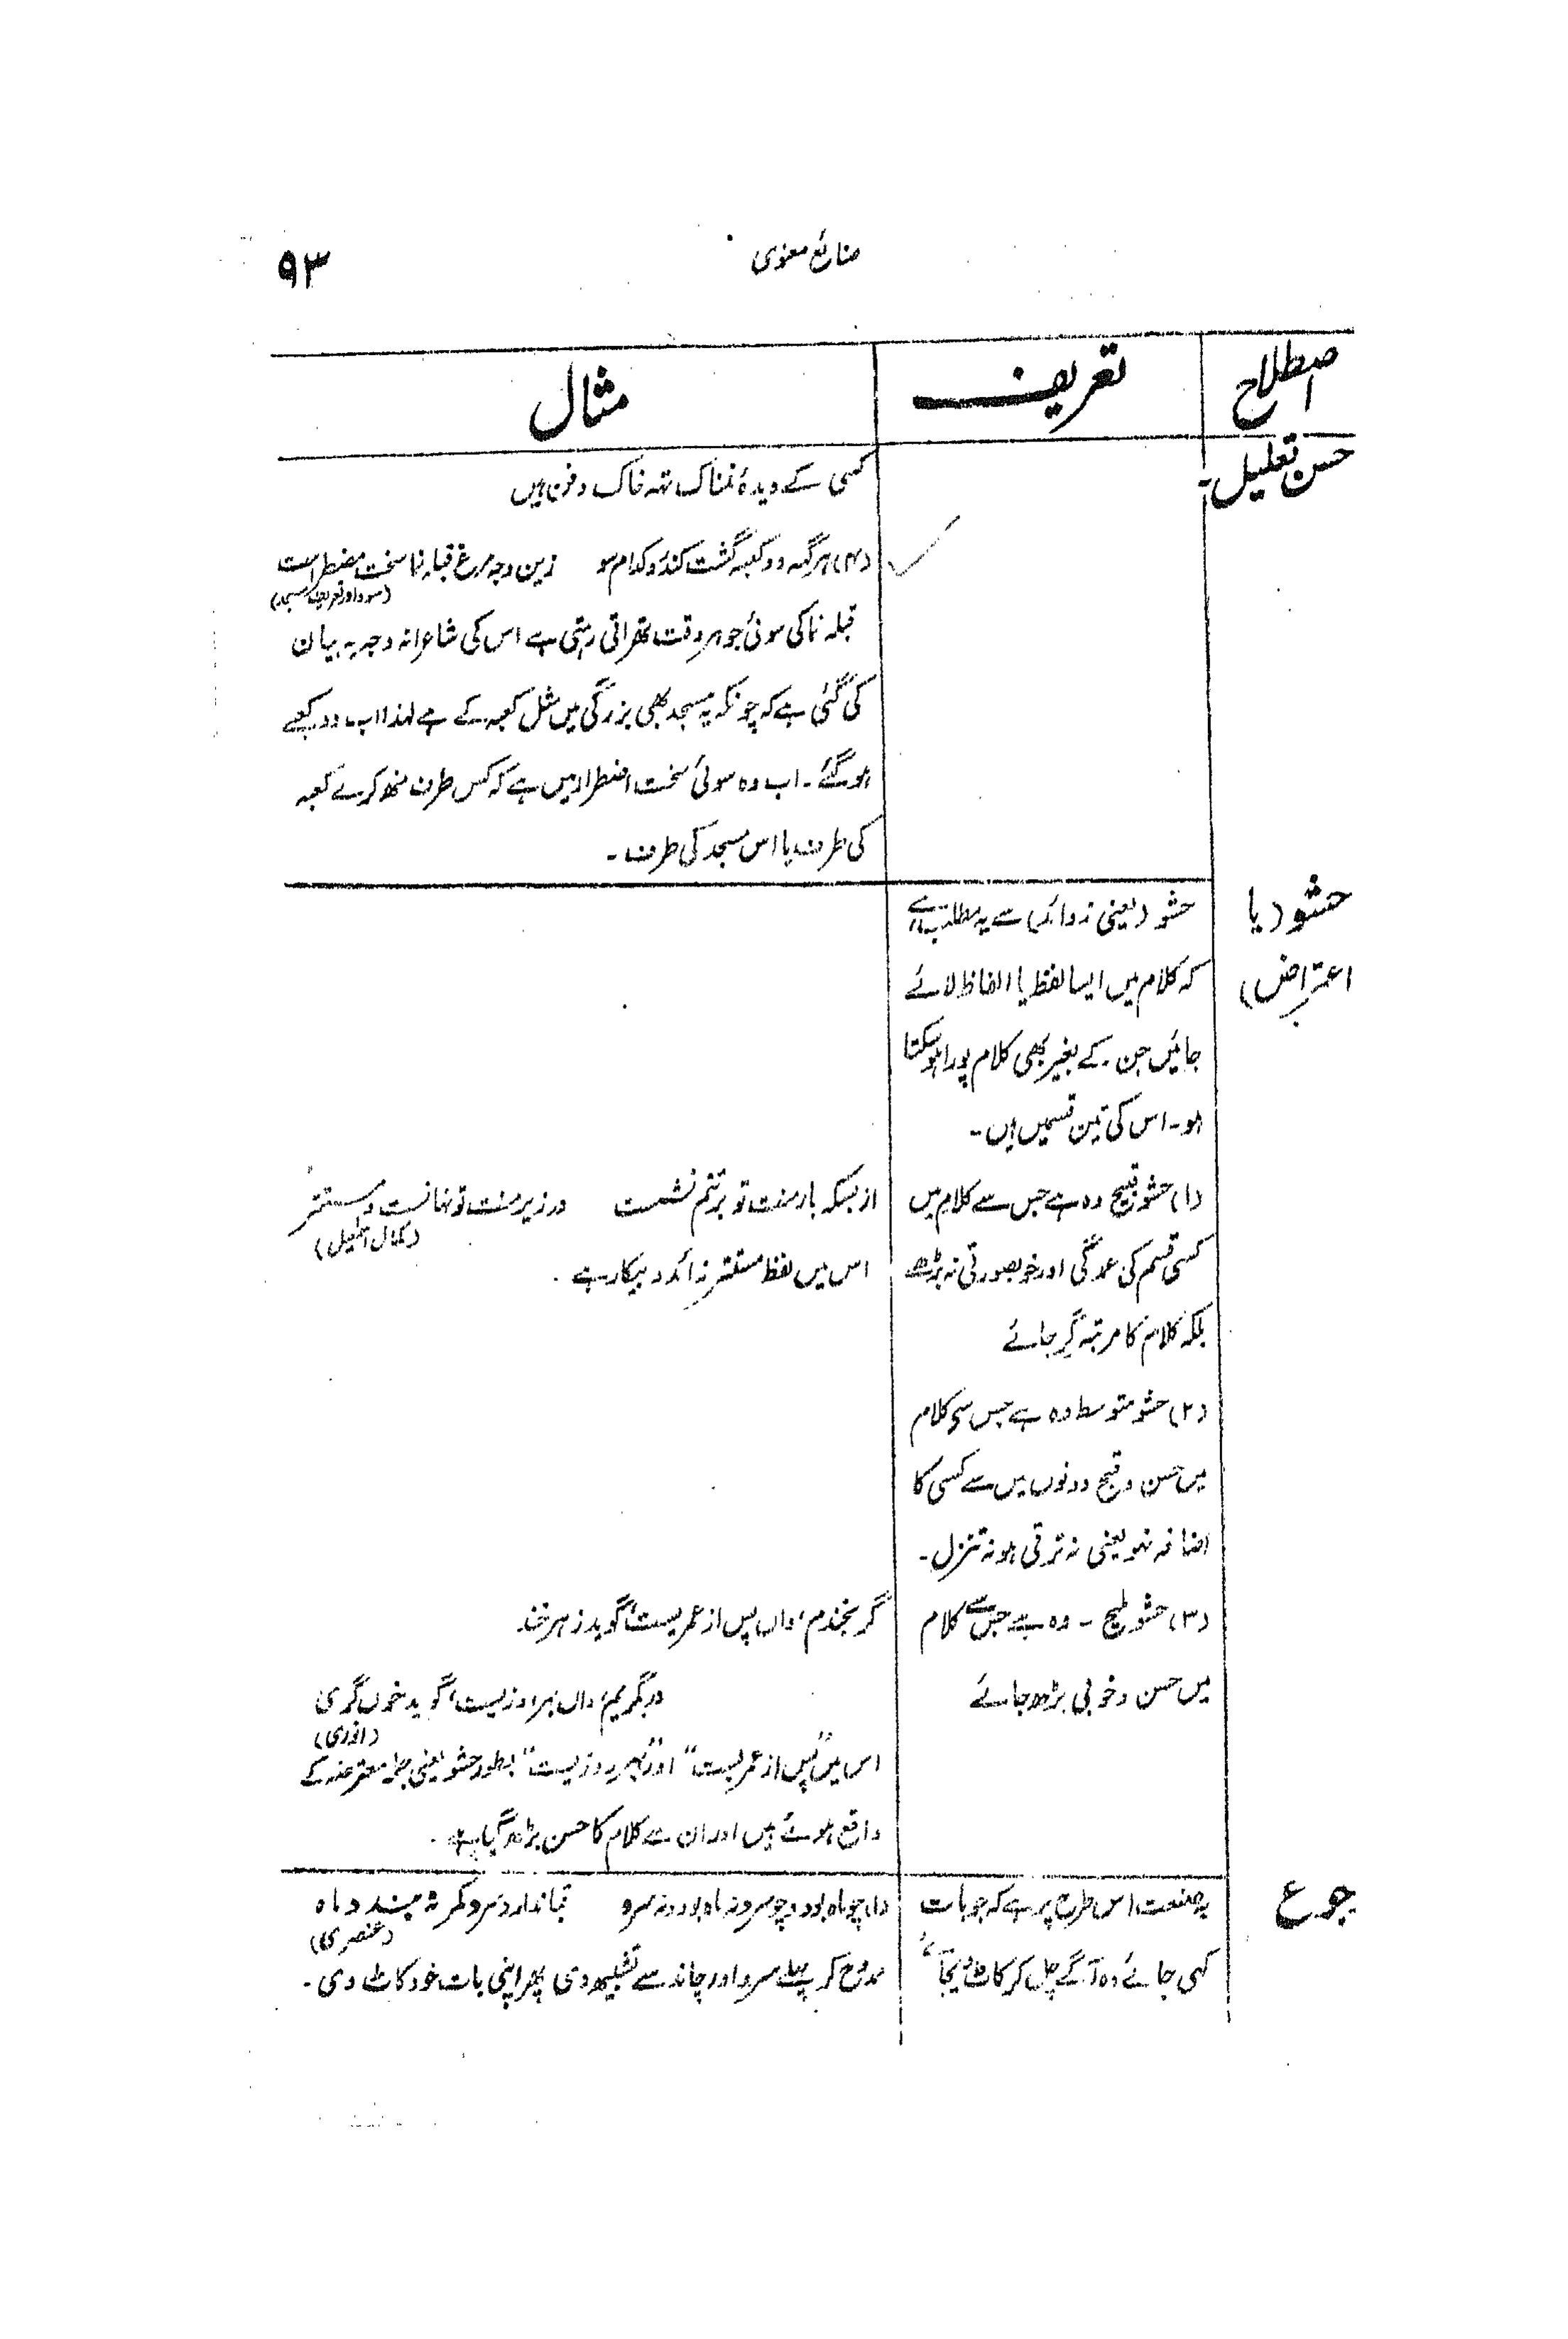 صنائع معنوی
۹۳
اصطلاح
تعریف
مثال
حسن تعلیل۔
کسی کے دیدۂ نمناک تہ خاک دفن ہیں
(۴) ہرگہ دو کعبہ گشت کند رو کدام سو زین وجہ مرغ قبلہ نما سخت مضطر است
(سودا در تعریف مسجد)
قبلہ نما کی سوئی جو ہر وقت تھراتی رہتی ہے اس کی شاعرانہ وجہ یہ بیان
کی گئی ہے کہ چونکہ یہ مسجد بھی بزرگی میں مثل کعبہ کے ہے لہذا اب دو کعبے
ہو گئے۔ اب وہ سوئی سخت اضطرار میں ہے کہ کس طرف منھ کرے کعبہ
کی طرف یا اس مسجد کی طرف۔
حشو (یا
اعتراض)
حشو (یعنی زوائد) سے یہ مطلب ہے
کہ کلام میں ایسا لفظ یا الفاظ لائے
جائیں جن کے بغیر بھی کلام پورا ہو سکتا
ہو۔ اس کی تین قسمیں ہیں۔
(۱) حشو قبیح وہ ہے جس سے کلام میں
کسی قسم کی عمدگی اور خوبصورتی نہ بڑھے
بلکہ کلام کا مرتبہ گر جائے
از بسکہ بار منت تو بر تنم نشست در زیر منت تو نہانست و مستتر
(کمال اسمٰعیل)
اس میں لفظ مستتر زائد و بیکار ہے۔
(۲) حشو متوسط وہ ہے جس سے کلام
میں حسن و قبح دونوں میں سے کسی کا
اضافہ نہو یعنی نہ ترقی ہو نہ تنزل۔
(۳) حشو ملیح ۔ وہ ہے جس سے کلام
میں حسن و خوبی بڑھ جائے
گر بخندم، واں پس از عمریست، گوید زہر خند
ور بگریم، واں بہر روزیست، گوید خوں گری
(انوری)
اس میں "پس از عمریست" اور "بہر روزیست" بطور حشو یعنی جملہ معترضہ کے
واقع ہوئے ہیں اور ان سے کلام کا حسن بڑھ گیا ہے۔
جوع
یہ صنعت اس طرح پر ہے کہ جو بات
کہی جائے وہ آگے چل کر کاٹ دیجائے
(۱) چو ماہ بود و چو سرو نہ ماہ بود و نہ سرو قبا ندارد سرو و کمر نہ بندد ماہ
(عنصری)
ممدوح کو پہلے سرو اور چاند سے تشبیہ دی پھر اپنی بات خود کاٹ دی۔